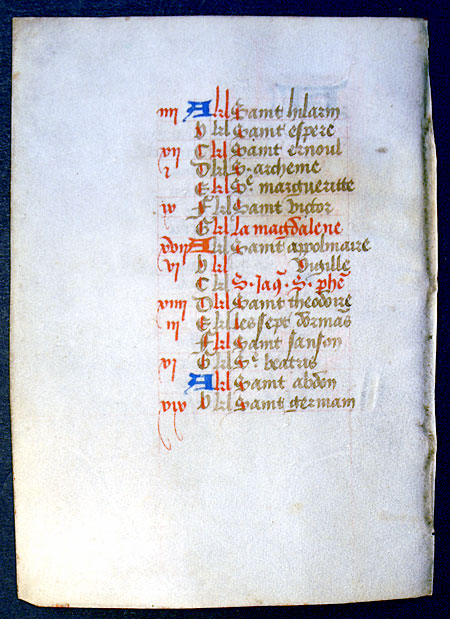 iiii A kl Saint hilarin
b kl Saint espere
xii C kl Saint ernoul
i D kl S. archeme
E kl Se margueritte
ix F kl Saint victor
G kl la magdalene
xvii A kl Saint appolinaire
vi b kl Vigille
C kl S. Jaq. S. phe
xiiii D kl Saint theodore
iii E kl les sept dormas
F kl Saint sanson
xi G kl Se beatris
A kl Saint abdon
xix b kl Saint germain